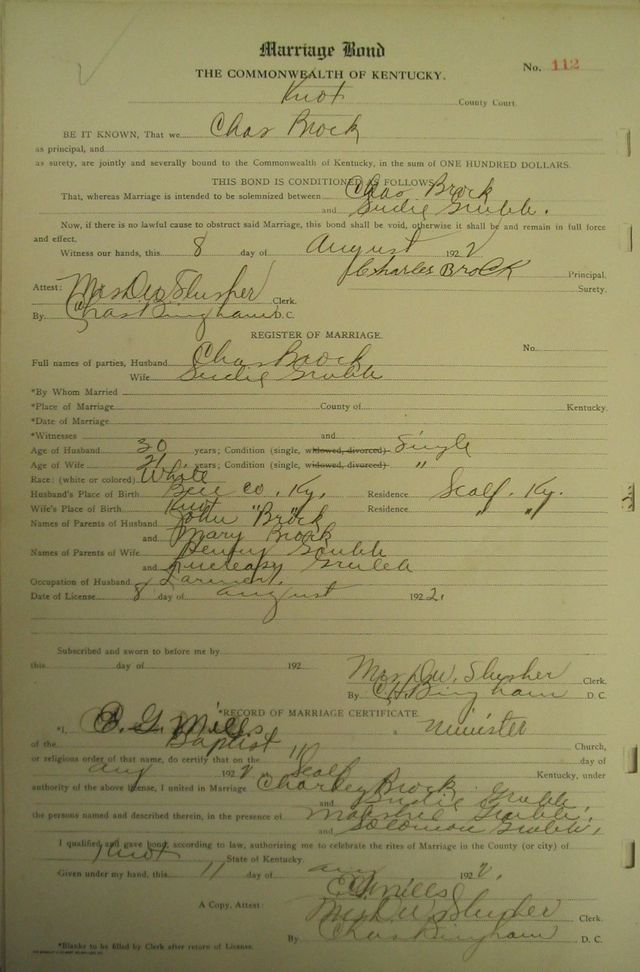 Marriage Bond
No. 112
THE COMMONWEALTH OF KENTUCKY.
Knox County Court.
BE IT KNOWN, That we Chas Brock
as principal, and
as surety, are jointly and severally bound to the Commonwealth of Kentucky, in the sum of ONE HUNDRED DOLLARS.
THIS BOND IS CONDITIONED AS FOLLOWS
That, whereas Marriage is intended to be solemnized between Chas Brock
and Sudie Grubb.
Now, if there is no lawful cause to obstruct said Marriage, this bond shall be void, otherwise it shall be and remain in full force
and effect.
Witness our hands, this 8 day of August 1922
Charles Brock Principal.
Surety.
Attest: Mrs D.W. Slusher Clerk.
By Chas Bingham D.C.
REGISTER OF MARRIAGE.
No.
Full names of parties, Husband Chas Brock
Wife Sudie Grubb
*By Whom Married
*Place of Marriage County of Kentucky.
*Date of Marriage
*Witnesses and
Age of Husband 30 years; Condition (single, widowed, divorced) Single
Age of Wife 21 years; Condition (single, widowed, divorced) "
Race: (white or colored) White
Husband's Place of Birth Bell co. Ky. Residence Scalf. Ky.
Wife's Place of Birth Knox " " Residence " "
Names of Parents of Husband John Brock
and Mary Brock
Names of Parents of Wife Grubb
and Grubb
Occupation of Husband Farmer.
Date of License 8 day of August 1922.
Subscribed and sworn to before me by
this day of 192
Mrs D.W. Slusher Clerk.
By C.H. Bingham D. C.
*RECORD OF MARRIAGE CERTIFICATE
*I, Mills a minister
of the Baptist Church,
or religious order of that name, do certify that on the 11 day of
Aug 1922 Scalf Kentucky, under
authority of the above license, I united in Marriage Charley Brock
and Sudie Grubb,
the persons named and described therein, in the presence of Grubb
and Solomon Grubb,
I qualified and gave bond, according to law, authorizing me to celebrate the rites of Marriage in the County (or city) of
Knox State of Kentucky.
Given under my hand, this 11 day of Aug 1922.
Mills
A Copy, Attest: Mrs D.W. Slusher Clerk.
By Chas Bingham D. C.
*Blanks to be filled by Clerk after return of License.